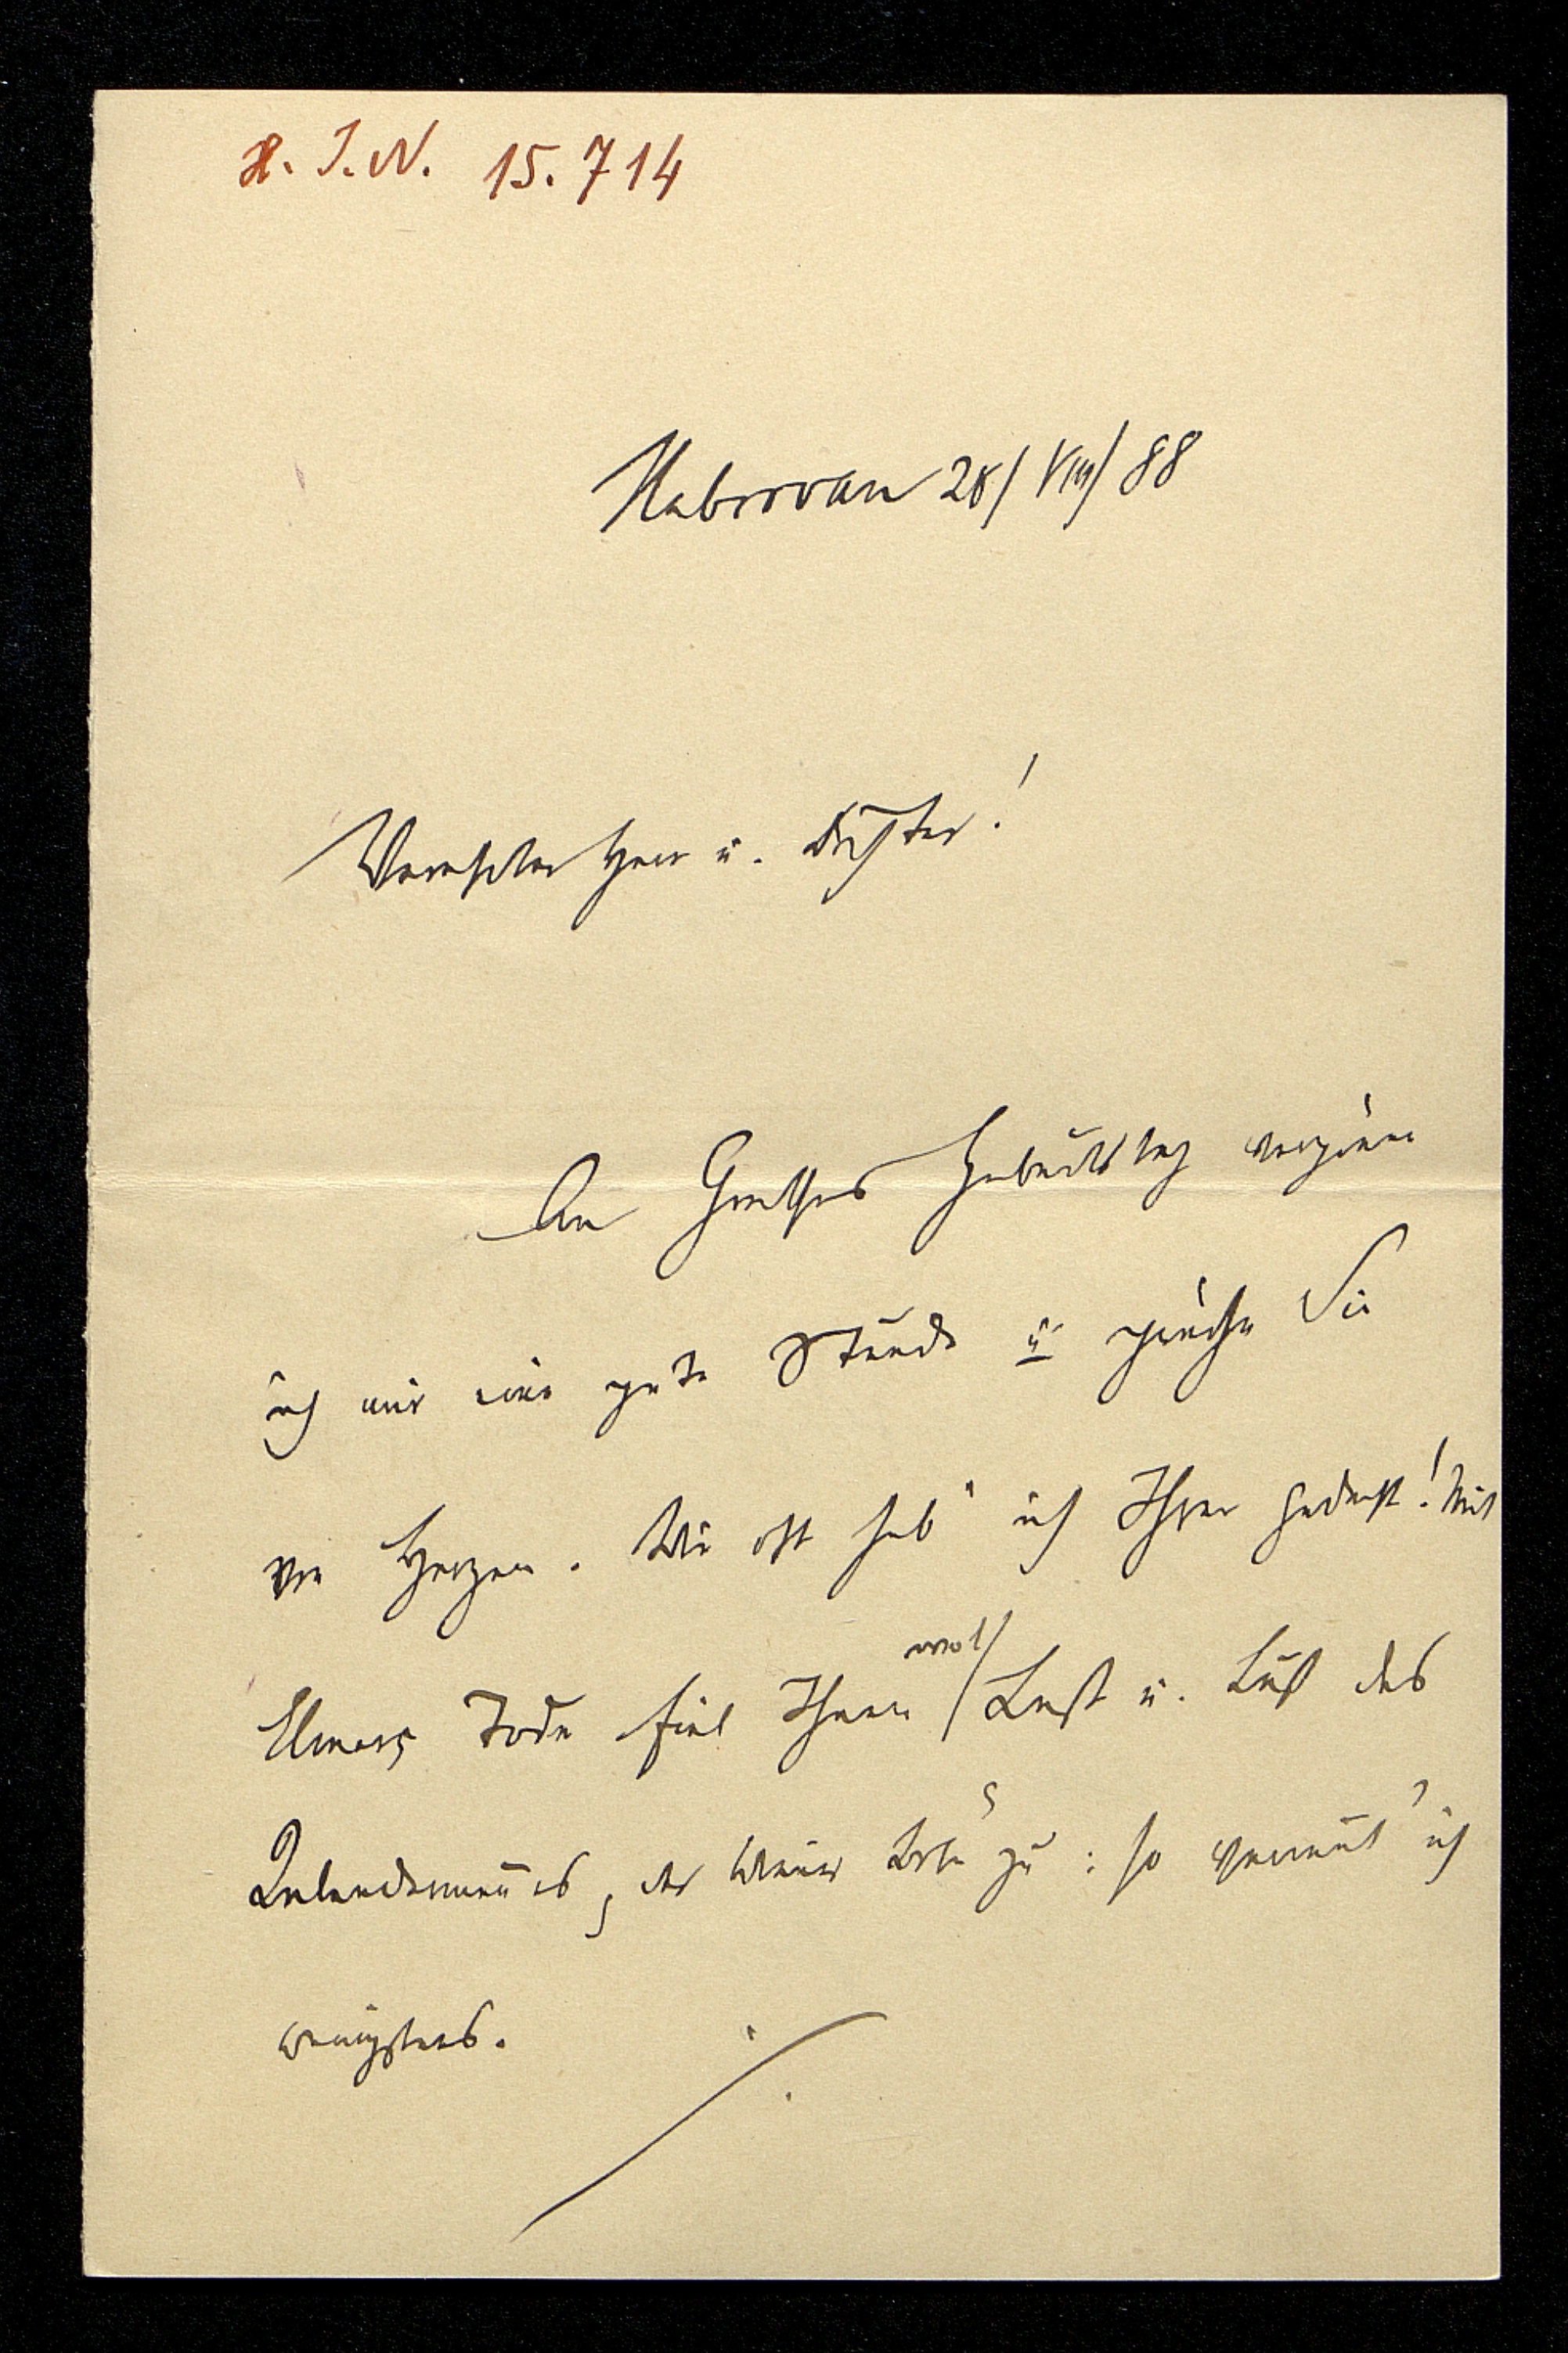 H. I. N. 15.714
Habrovan 28/VIII/88
Verehrter Herr u. Dichter!
An Goethes Geburtstag vergönne
ich mir eine gute Stunde u. grüße Sie
von Herzen. Wie oft hab' ich Ihrer gedacht! Mit
wol
Tode fiel Ihnen Last u. Lust des
, der zu: so vermut' ich
wenigstens.